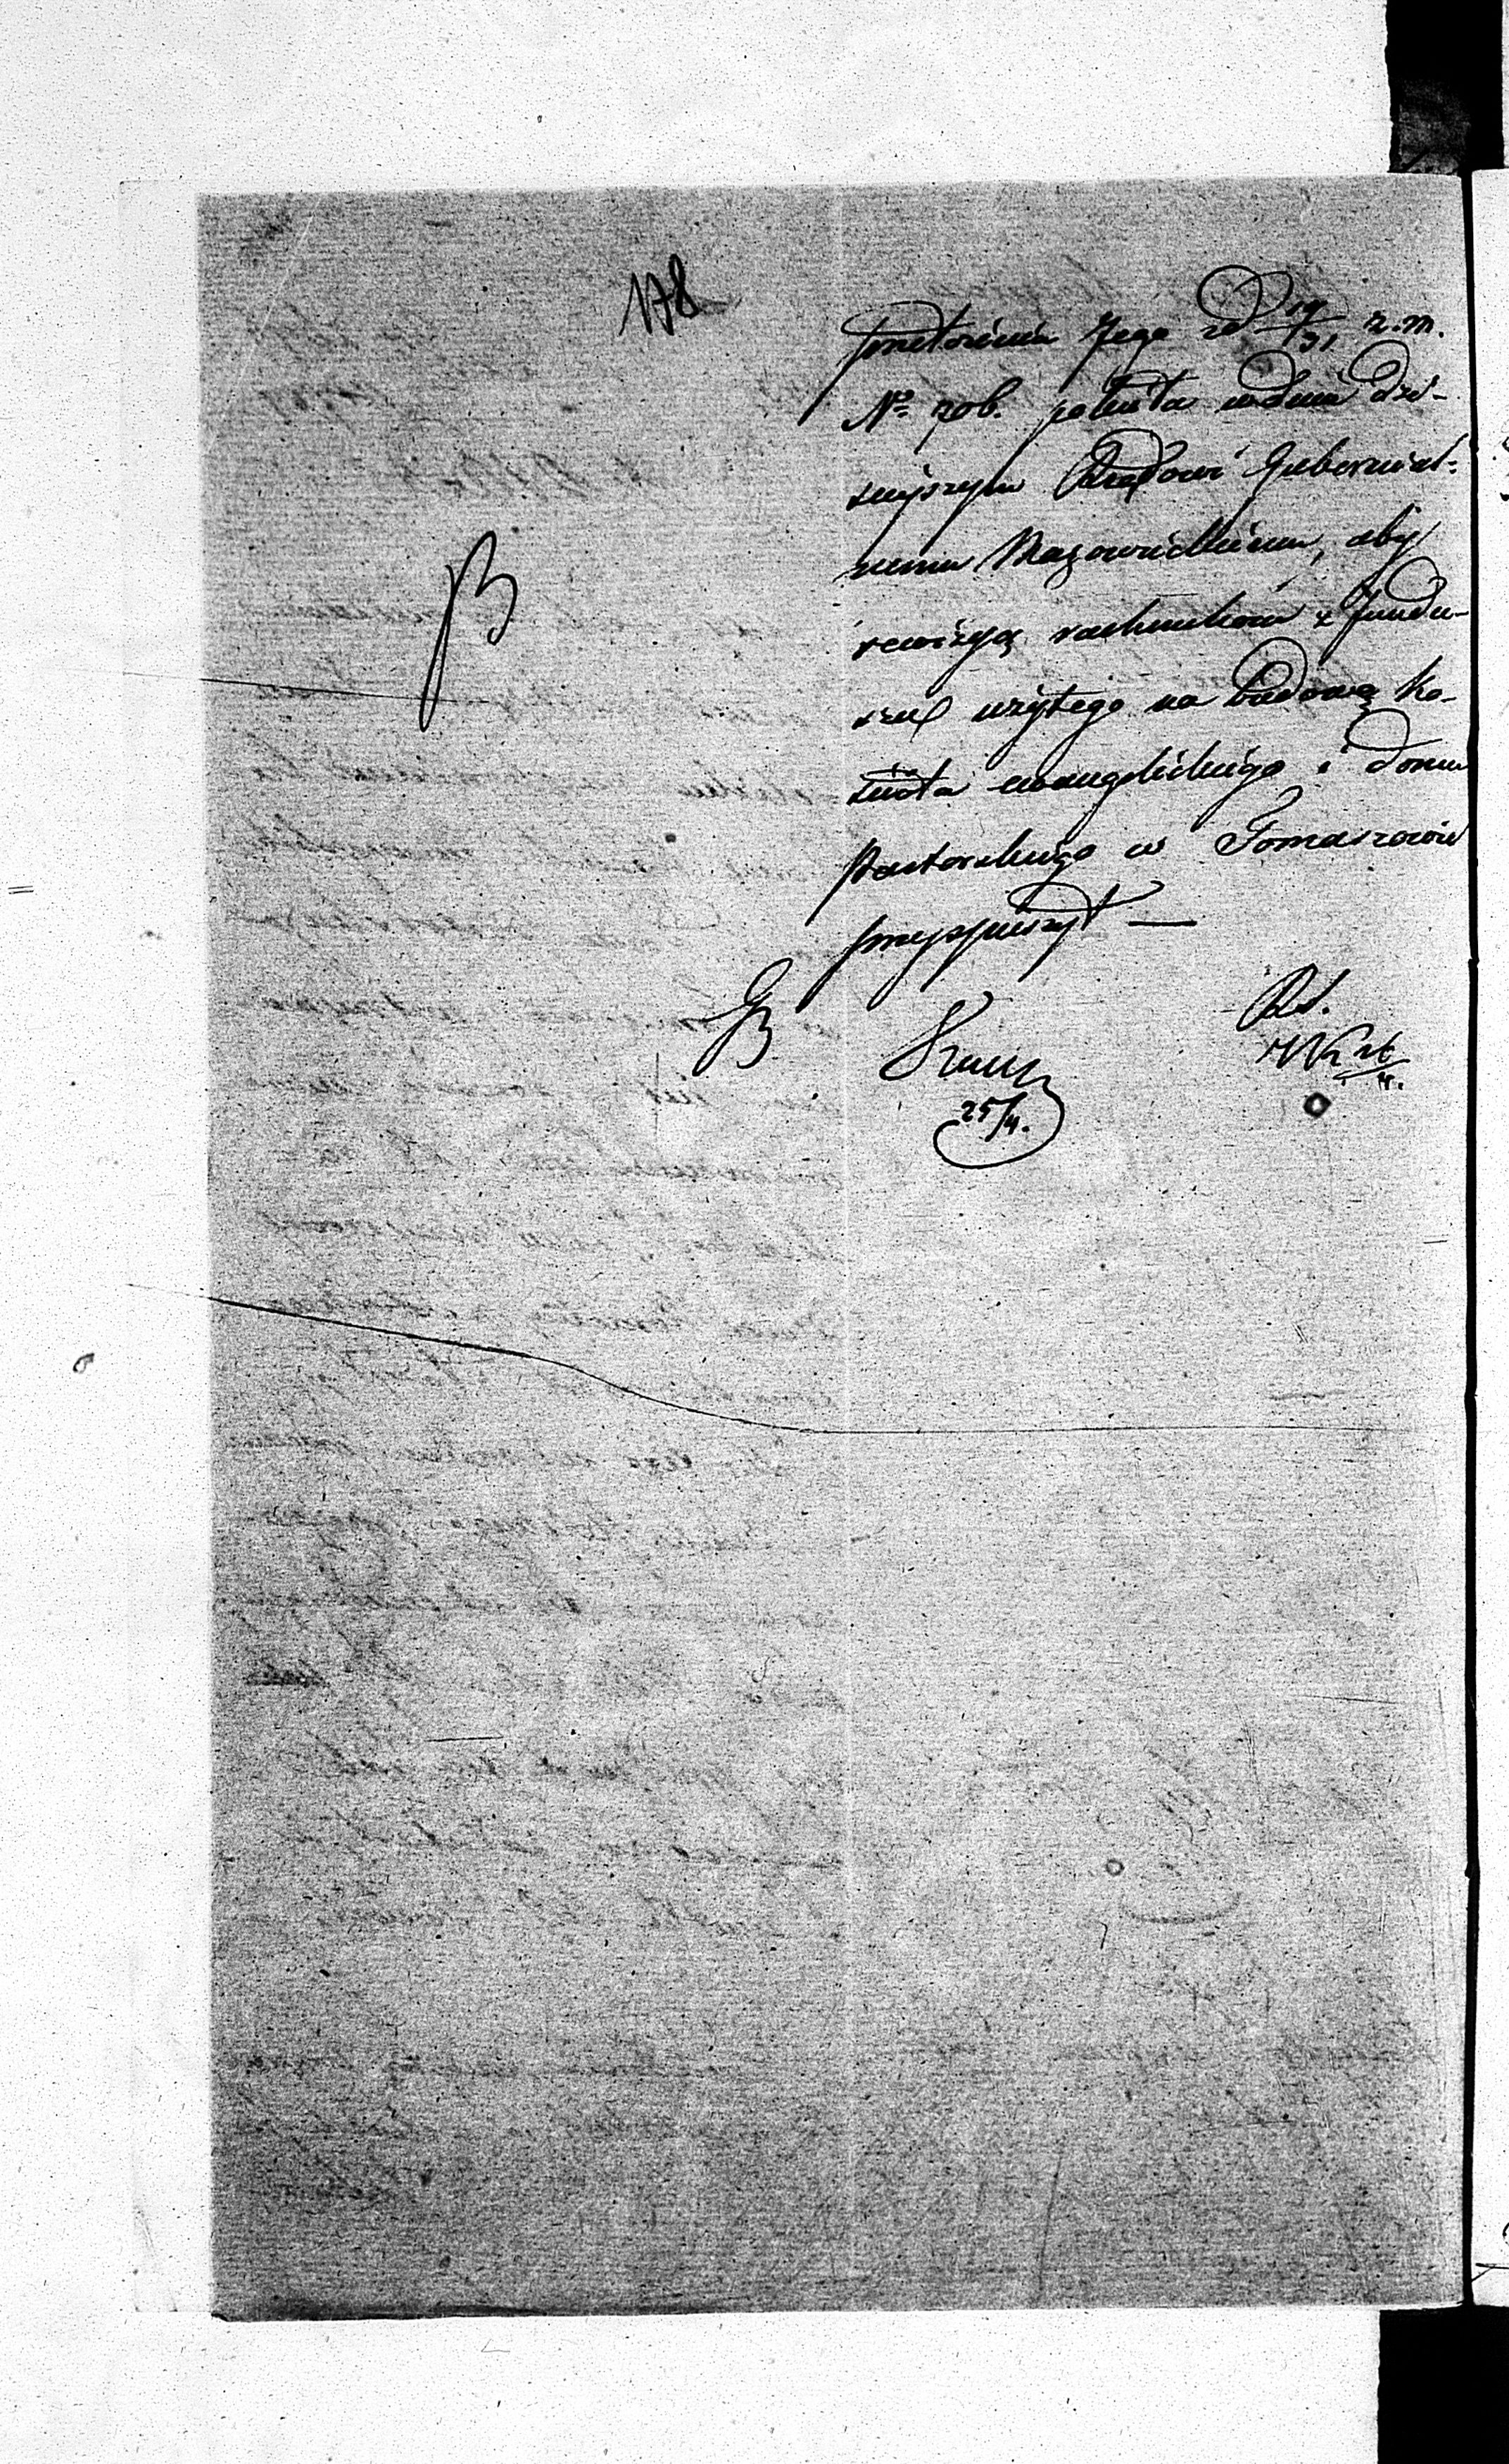 178
przełożenia Jego od 19/31 z. m.
No. 706. poleciła w dniu dzi-
siejszym Rządowi Gubernial-
nemu Mazowieckiemu, aby
rewizyą rachunków z fundu-
szu użytego na budowę ko-
ścioła ewangelickiego i domu
Pastorskiego w Tomaszowie
przyspieszył —
25/4.